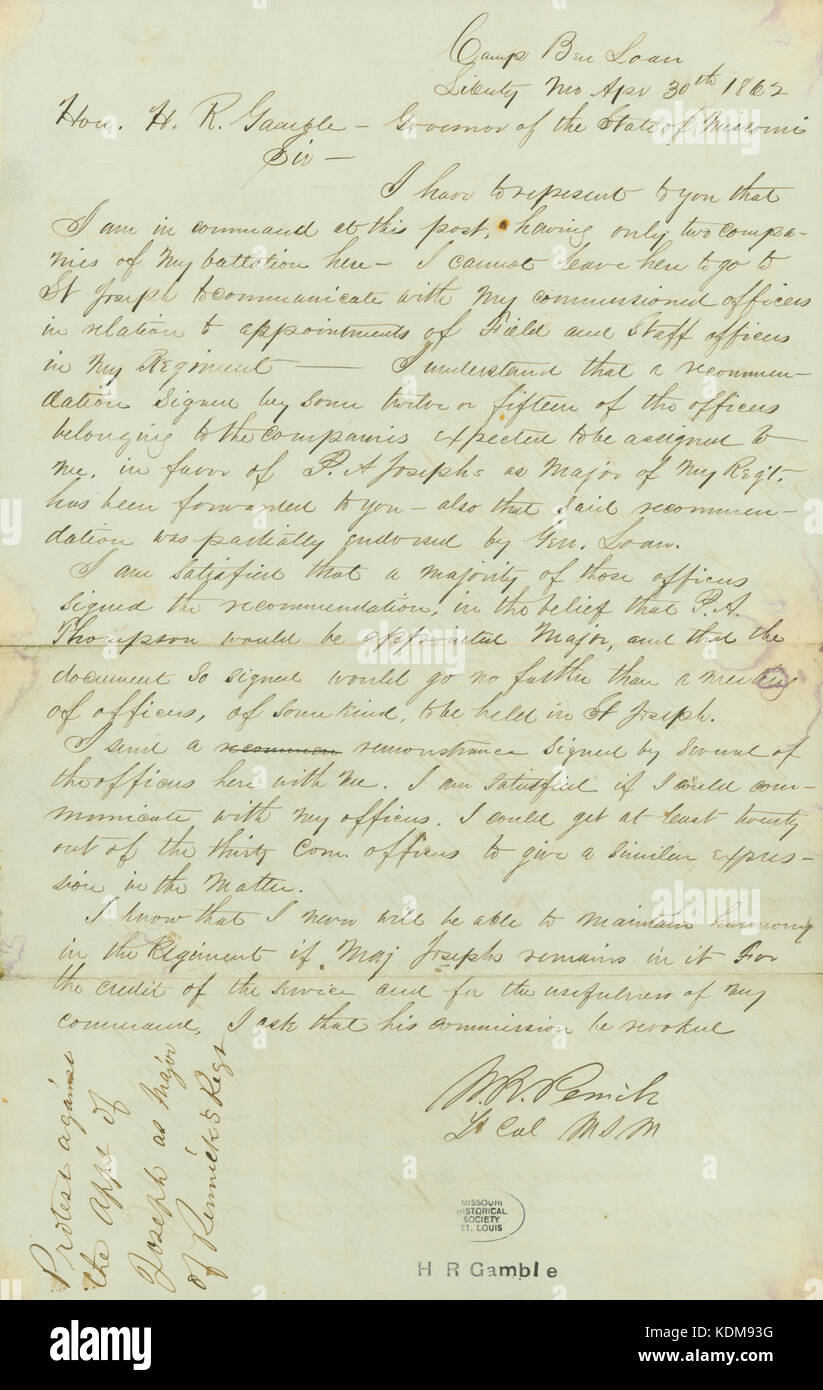 Camp Ben Loan
Liberty Mo Apr 30th 1862
Hon. H. R. Gamble – Governor of the State of Missouri
Sir –
I have to represent to you that
I am in command at this post, having only two compa-
nies of my battalion here – I cannot leave here to go to
St Joseph to communicate with my commissioned officers
in relation to appointments of Field and Staff officers
in my Regiment — I understand that a recommen-
dation signed by some twelve or fifteen of the officers
belonging to the companies expected to be assigned to
me, in favor of P. A Josephs as Major of my Regt.
has been forwarded to you – also that said recommen-
dation was partially endorsed by Gen. Loan.
I am satisfied that a majority of those officers
signed the recommendation, in the belief that P. A.
Thompson would be appointed Major, and that the
document so signed would go no further than a meeting
of officers, of some kind, to be held in St Joseph.
I send a recommen remonstrance signed by several of
the officers here with me. I am satisfied if I could com-
municate with my officers. I could get at least twenty
out of the thirty Com. officers to give a similar expres-
sion in the matter.
I know that I never will be able to maintain harmony
in the Regiment if Maj Josephs remains in it For
the credit of the service and for the usefulness of my
command, I ask that his commission be revoked
W. R. Penick
Lt Col M S M
Protest against
the appt of
Joseph as Major
of Pennick's Regt
MISSOURI
HISTORICAL
SOCIETY
ST. LOUIS
H R Gamble
alamy
alamy
alamy
a
a
a
alamy stock photo
KDM93G